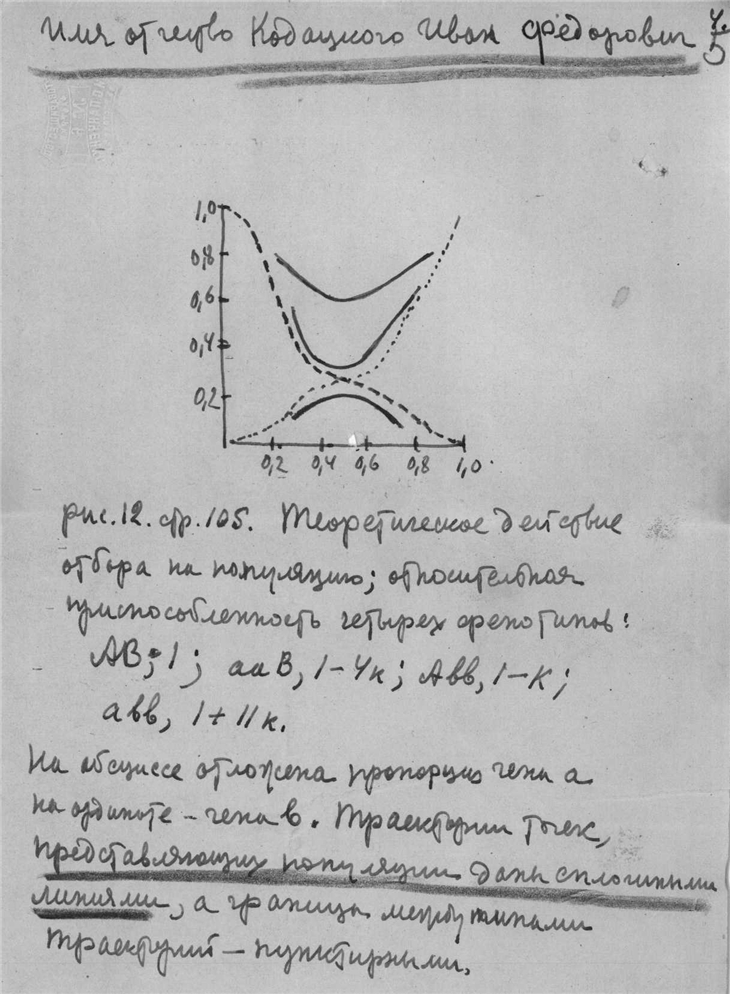 Имя отчество Кодацкого Иван Федорович
1,0
0,8
0,6
0,4
0,2
0,2 0,4 0,6 0,8 1,0
рис. 12. стр. 105. Теоретическое действие
отбора на популяцию; относительная
приспособленность четырех фенотипов:
АВ, 1; ааВ, 1-4к; Авв, 1-К;
авв, 1+11к.
На абсциссе отложена пропорция гена а
на ординате – гена в. Траектории точек,
представляющих популяции даны сплошными
линиями, а граница между типами
траекторий – пунктирными.